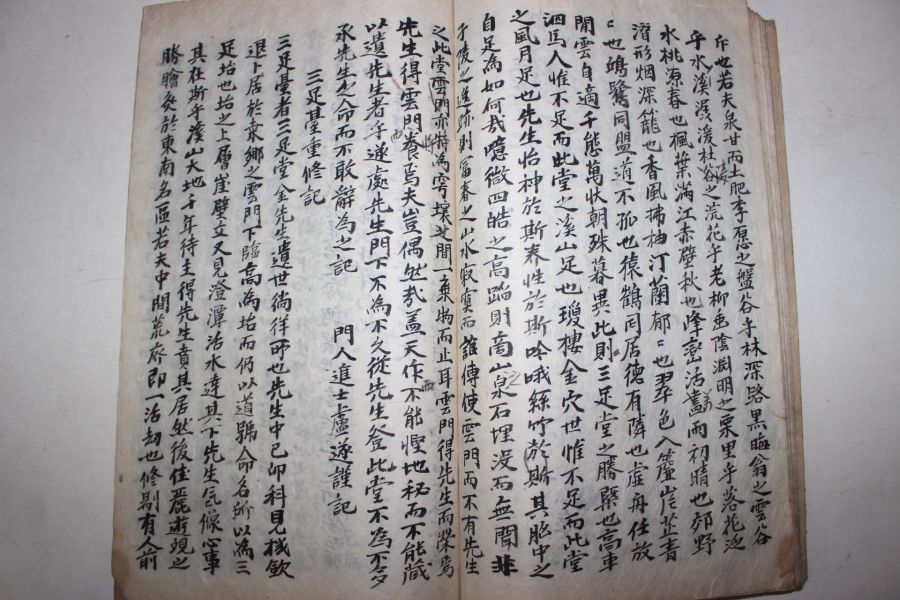 斤也若夫泉甘而土肥李愿之盤谷乎林深路黑晦翁之雲谷
乎水溪溪溪杜谷之浣花乎老柳垂陰淵明之栗里乎落花泛
水桃源春也楓葉滿江赤壁秋也峰巒活畵而初晴也郊野
渭形烟深籠也香風拂柚汀蘭郁〻也翠色入簷岸芷青
〻也鷗鷺同盟道不孤也猿鶴同居德有隣也虛舟任放
閒雲自適千態萬狀朝殊暮異此則三足堂之勝槩也高車
泗馬人惟不足而此堂之溪山足也瓊樓金穴世惟不足而此堂
之風月足也先生怡神於斯春性於斯吟哦絲竹於斯其胸中之
自足爲如何哉噫微四皓之高蹈則商山泉石埋沒而無聞非
子陵之進跡則富春之山水寂寞而誰傳使雲門而不有先生
之此堂雲門亦特爲穹壤之間一棄物而止耳雲門得先生而榮焉
先生得雲門而養焉夫豈偶然哉盖天作而不能慳地秘而不能藏
以遺先生者乎遂處先生門下不爲不久從先生登此堂不爲不多
承先生之命而不敢辭爲之記 門人進士盧遂謹記
三足䑓重修記
三足䑓者三足堂金先生遺世徜徉所也先生中己卯科見機欽
退卜居於衆鄕之雲門下臨高爲坮而仍以道號命名所以爲三
足坮也坮之上層崖壁立又見澄潭活水達其下先生氣像心事
其在斯乎溪山大地千年待主得先生賁其居然後佳麗逝現之
勝膾炙於東南名區若夫中間荒廢即一浩刼也修剔有人前